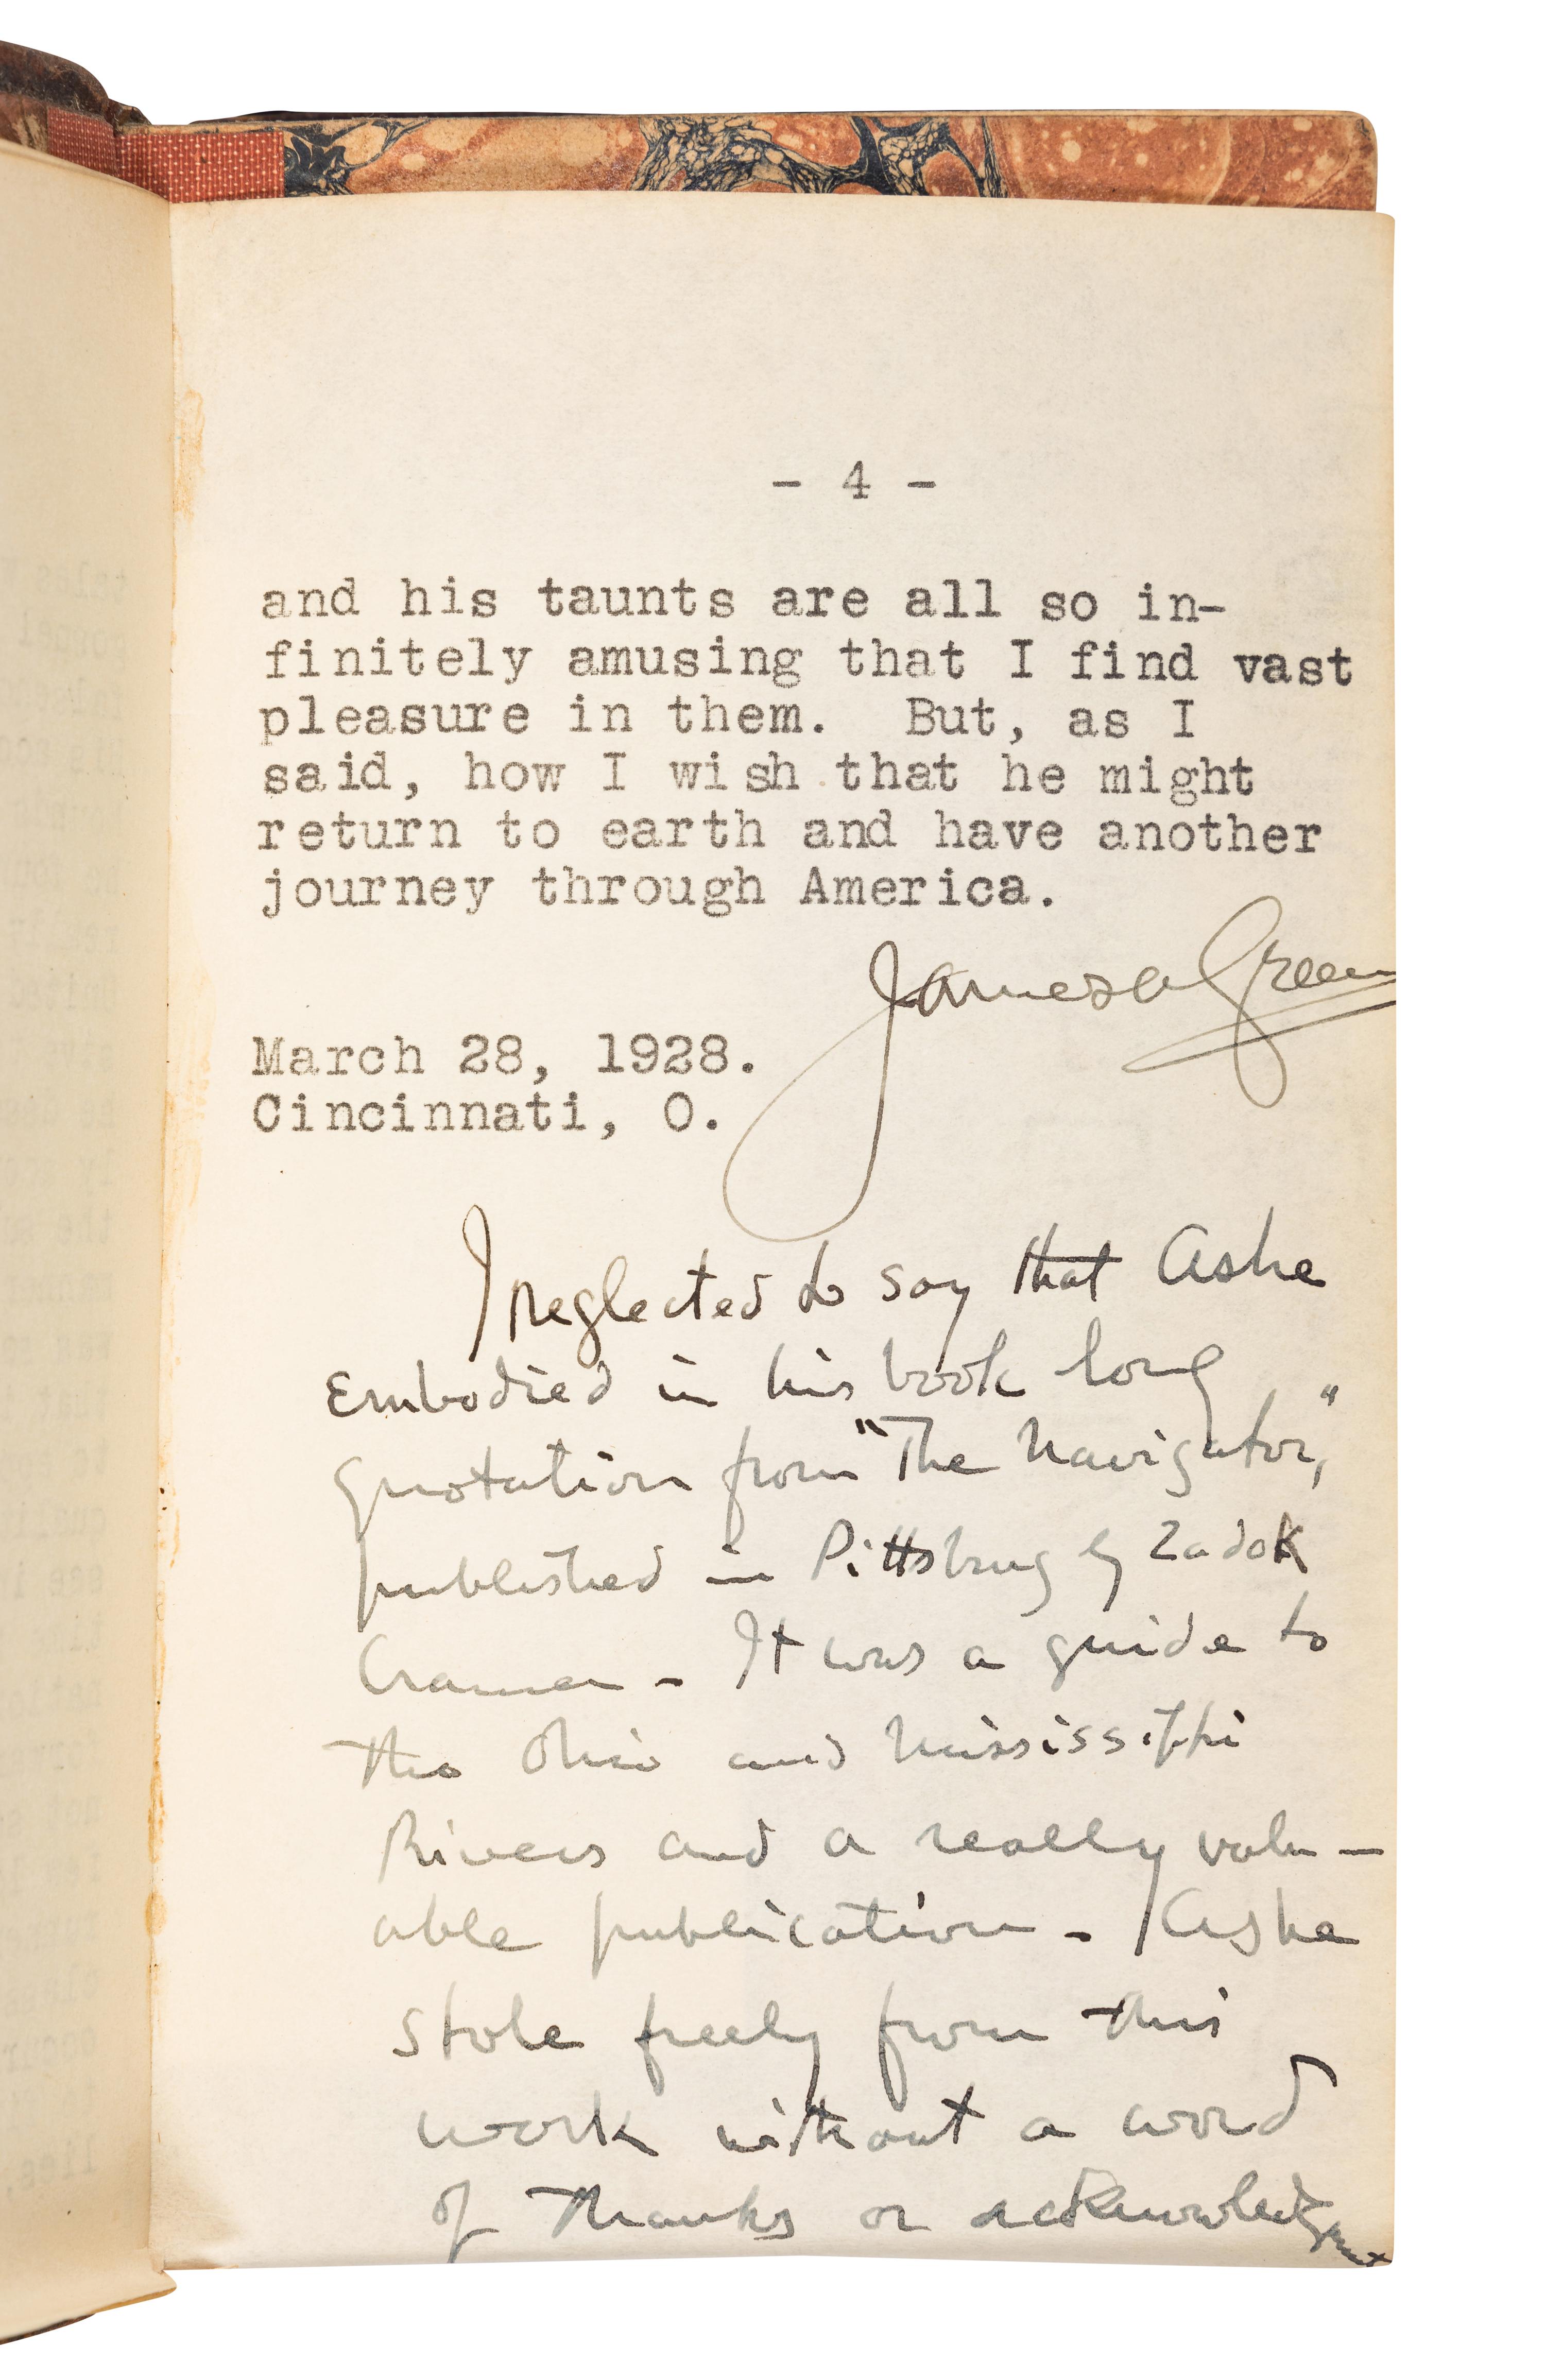 - 4 -
and his taunts are all so in-
finitely amusing that I find vast
pleasure in them. But, as I
said, how I wish that he might
return to earth and have another
journey through America.
James A Green
March 28, 1928.
Cincinnati, O.
I neglected to say that Ashe
Embodied in his book long
quotation from "The Navigator,"
published in Pittsburg by Zadok
Cramer - It was a guide to
the Ohio and Mississippi
Rivers and a really valu-
able publication - Ashe
stole freely from this
work without a word
of thanks or acknowledgment